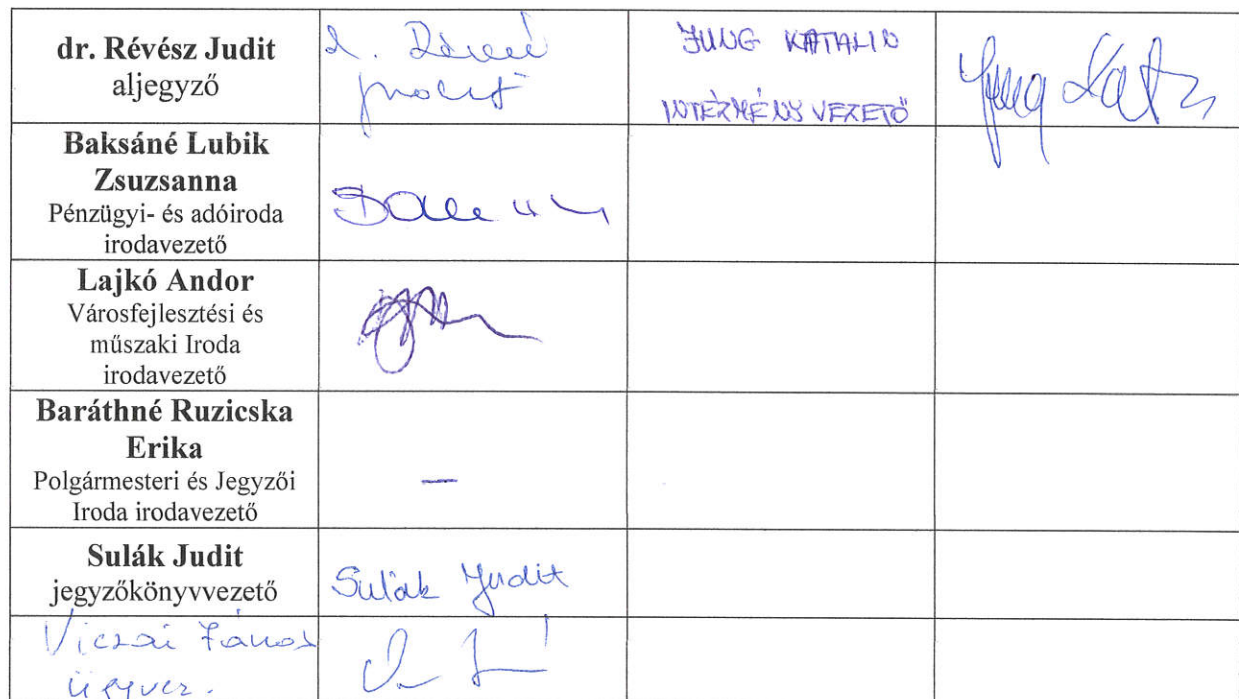 dr. Révész Judit
aljegyző
JUNG KATALIN
INTÉZMÉNYVEZETŐ
Jung Kat
Baksáné Lubik
Zsuzsanna
Pénzügyi- és adóiroda
irodavezető
Lajkó Andor
Városfejlesztési és
műszaki Iroda
irodavezető
Baráthné Ruzicska
Erika
Polgármesteri és Jegyzői
Iroda irodavezető
—
Sulák Judit
jegyzőkönyvvezető
Sulák Judit
Viczai János
ügyvez.